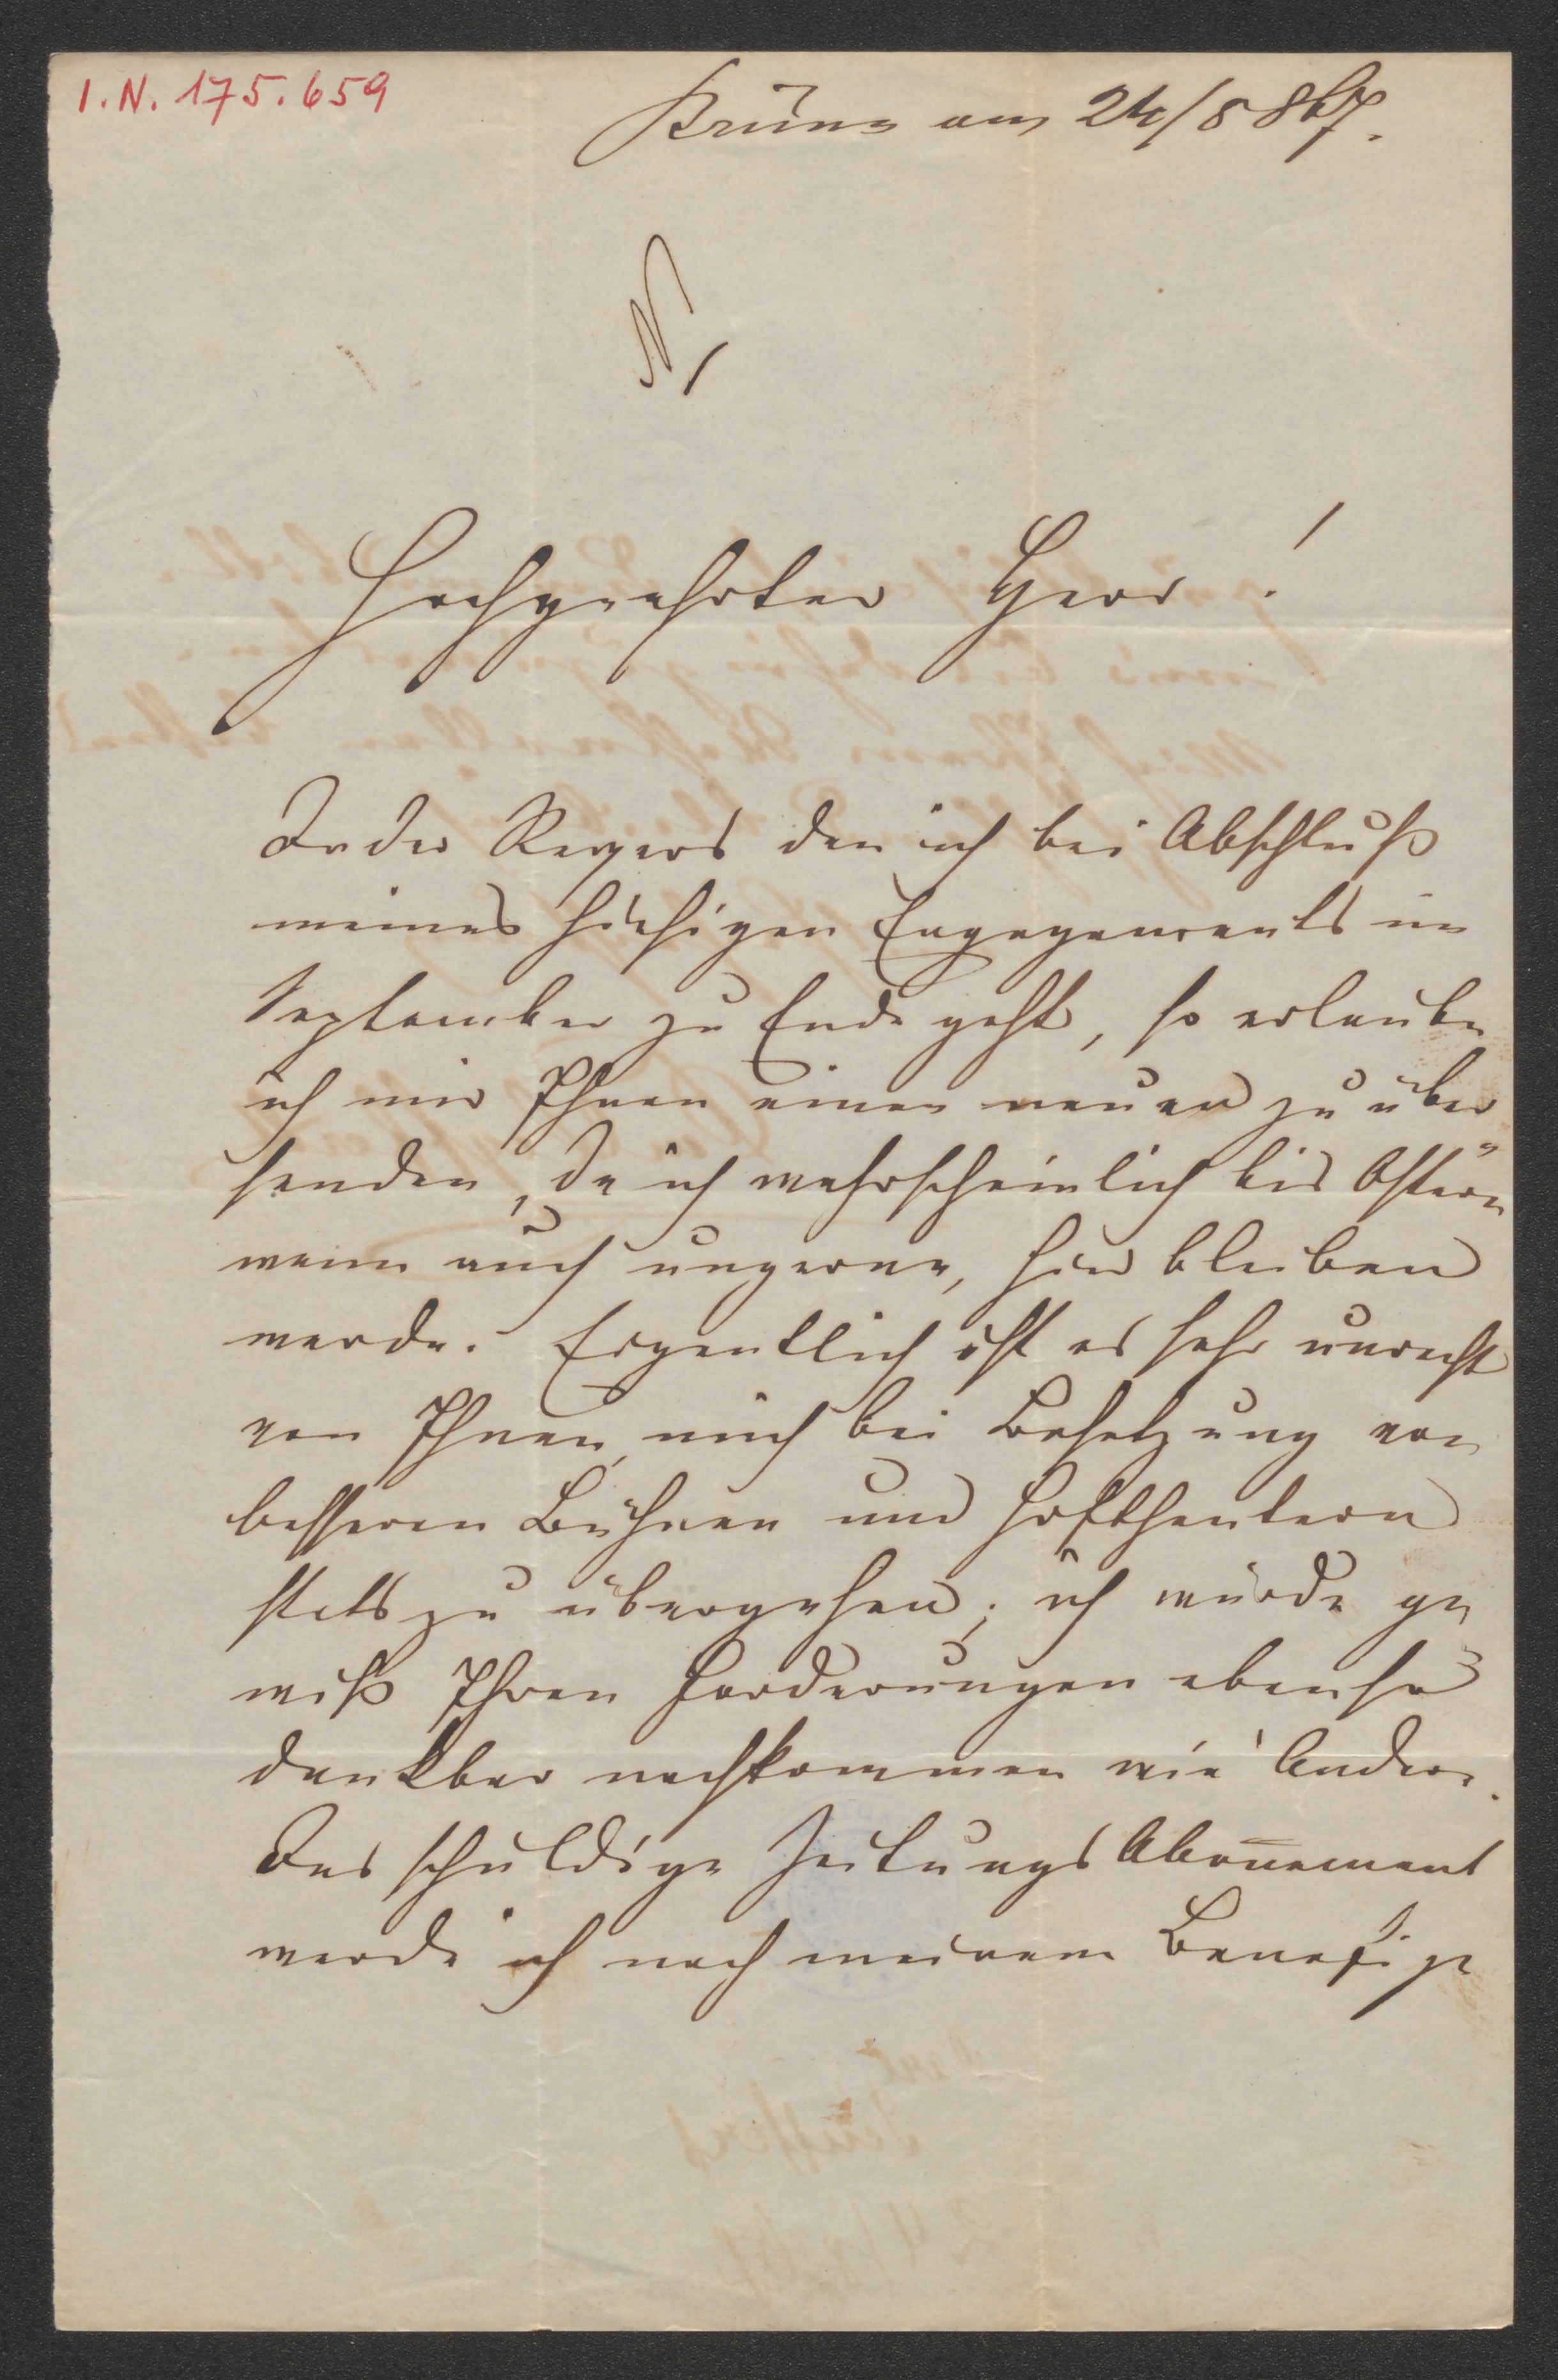 I.N. 175.659
Brünn am 24/8 867.
N
Hochgeehrter Herr!
Da der Revers den ich bei Abschluß
meines hiesigen Engagements im
September zu Ende geht, so erlaube
ich mir Ihnen einen neuen zu über
senden, da ich wahrscheinlich bis Ostern
wenn auch ungerne, hier bleiben
werde. Eigentlich ist es sehr unrecht
von Ihnen, mich bei Besetzung von
besseren Bühnen und Hoftheatern
stets zu übergehen; ich würde ge
wiß Ihren Forderungen ebenso
dankbar nachkommen wie Andere.
Das schuldige Zeitungs Abon̄ement
werde ich nach meinem Benefize